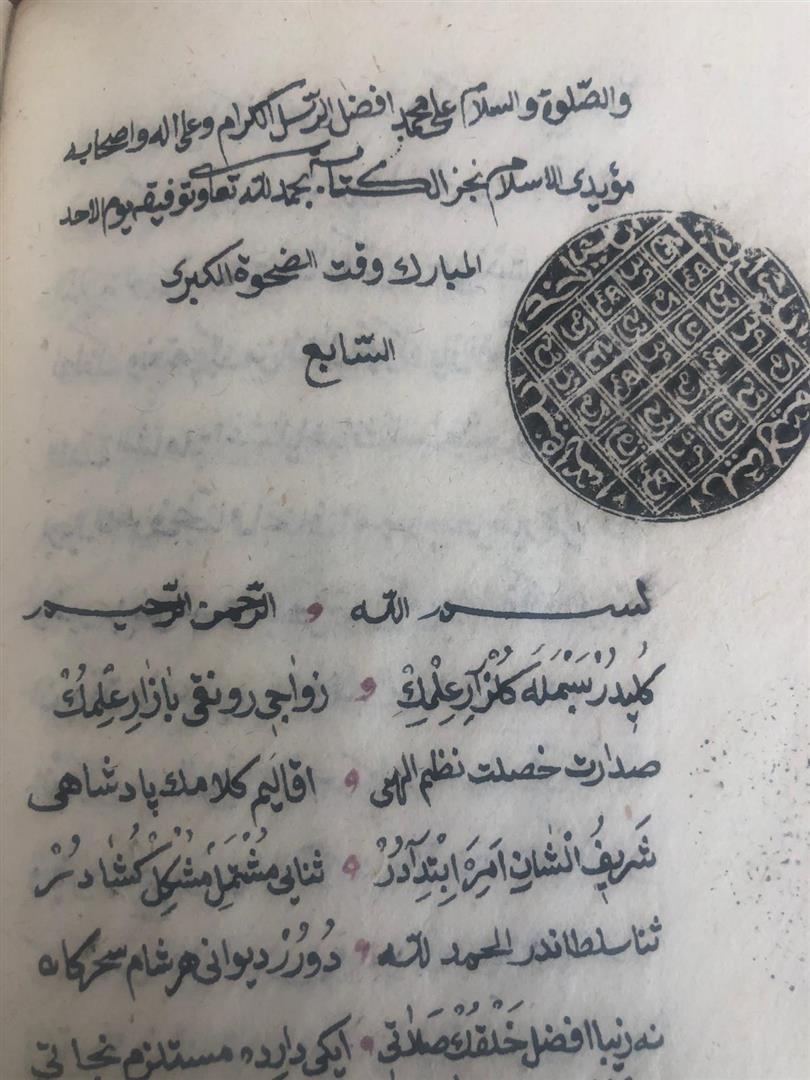 والصّلوة والسلام على محمد افضل الرّسل الكرام وعلى اله واصحابه
مؤيدى الاسلام نجز الكتاب بحمد لله تعا وتوفيقه يوم الاحد
المبارك وقت الضحوة الكبرى
السّابع
بسم الله و الرّحمن الرّحيم
كليدُرْ بَسْمَلَه كُلْزَارِ عِلْمِكْ و زواجى رونقى بازارِ عِلْمِكْ
صدارت خصلت نظيم الهى و اقاليم كلامك پادشاهى
شَرِيفُ انْشانِ امرَه اِبْتِدَآدُرْ و ثنايى مُشْتَمِلْ مُشْكِلْ كُشادُرْ
ثنا سلطاندر الحمد لله و دُورُرْ ديوانى هر شام سحرگاه
نه زيبا افضل خَلْقُكْ صَلَاتى و ايكى دارده مستلزم نجاتى